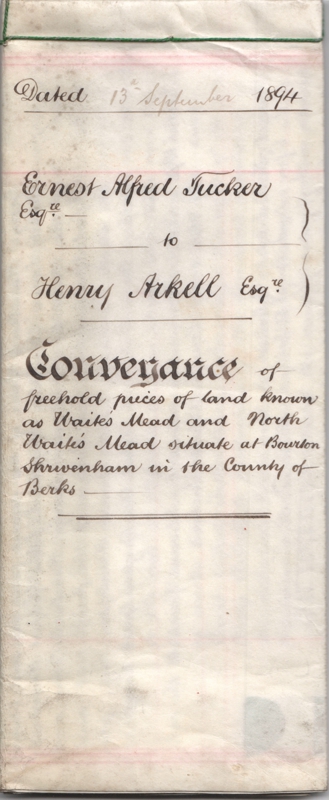 Dated 13th September 1894
Ernest Alfred Tucker
Esqre
to
Henry Arkell Esqre
Conveyance of
freehold pieces of land known
as Waite's Mead and North
Waite's Mead situate at Bourton
Shrivenham in the County of
Berks